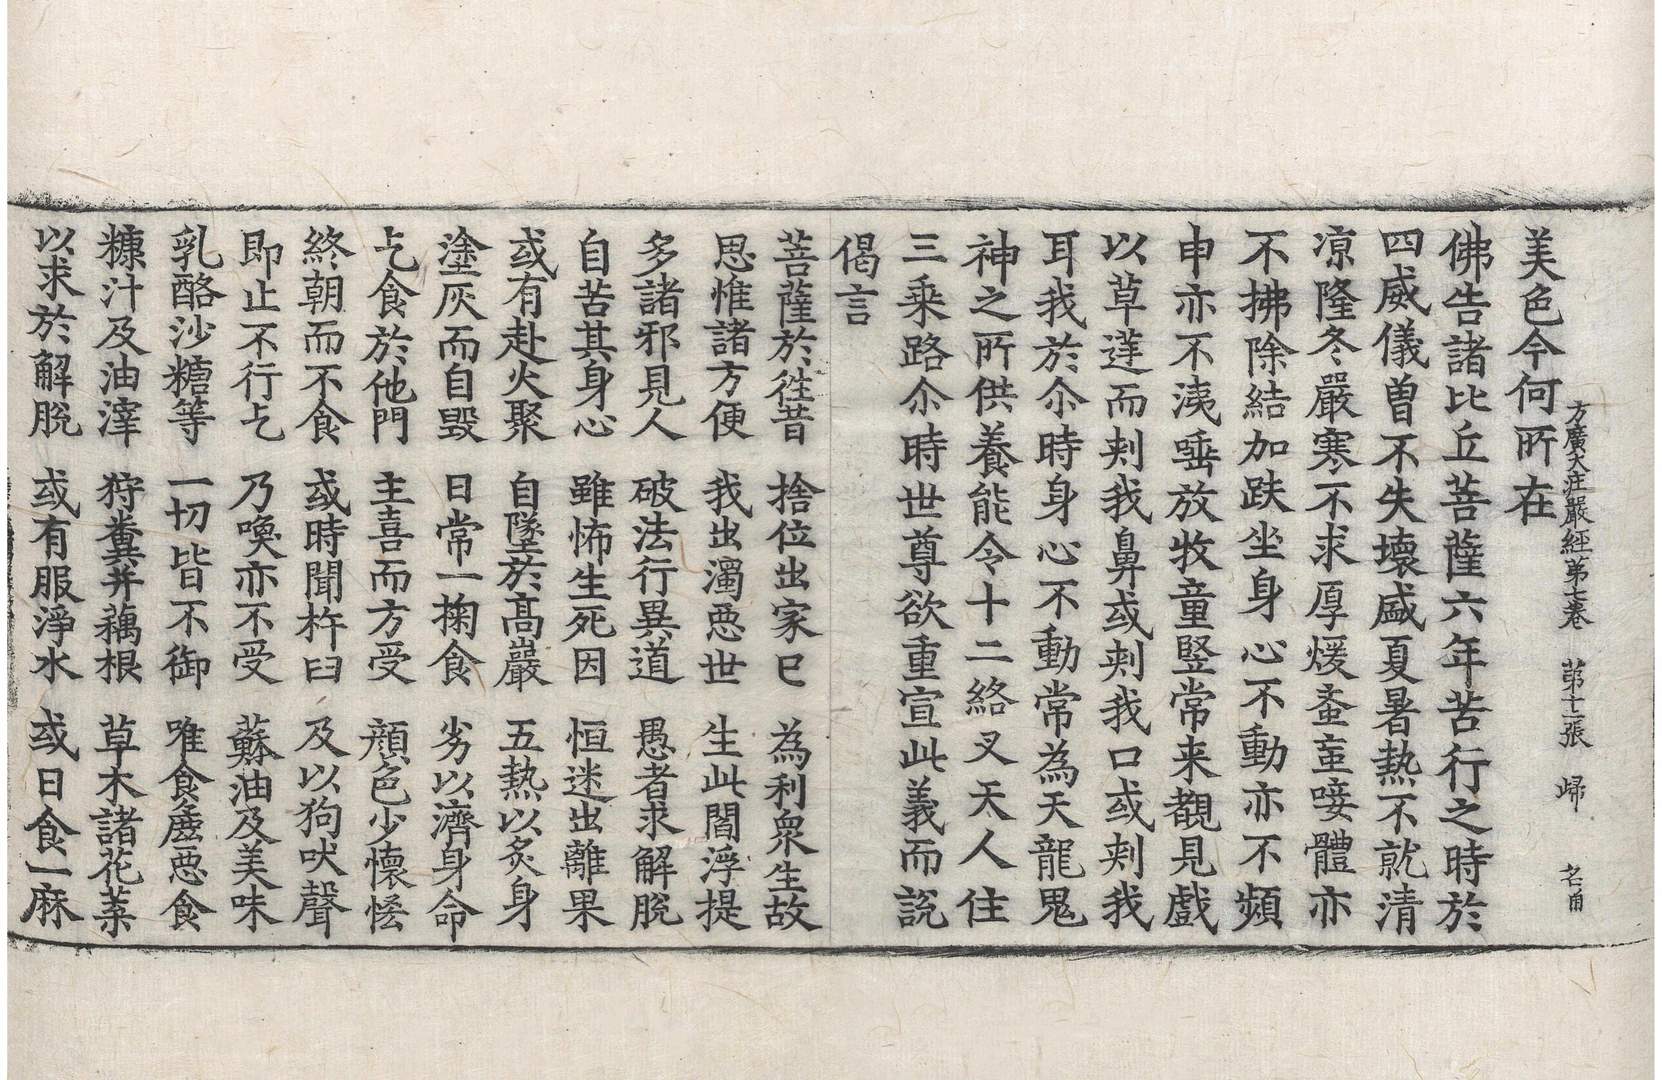 方廣大莊嚴經第七卷 第十二張 歸 名甫
美色今何所在
佛告諸比丘菩薩六年苦行之時於
四威儀曾不失壞盛夏暑熱不就清
凉隆冬嚴寒不求厚煖蚉䖟唼體亦
不拂除結加趺坐身心不動亦不頻
申亦不洟唾放牧童竪常来覩見戯
以草莛而刾我鼻或刾我口或刾我
耳我於尒時身心不動常為天龍鬼
神之所供養能令十二絡叉天人住
三乘路尒時世尊欲重宣此義而說
偈言
菩薩於往昔 捨位出家已 為利衆生故
思惟諸方便 我出濁惡世 生此閻浮提
多諸邪見人 破法行異道 愚者求解脫
自苦其身心 雖怖生死因 恒迷出離果
或有赴火聚 自墜於高巖 五熱以炙身
塗灰而自毀 日常一掬食 劣以濟身命
乞食於他門 主喜而方受 顔色少懷恡
終朝而不食 或時聞杵臼 及以狗吠聲
即止不行乞 乃喚亦不受 蘇油及美味
乳酪沙糖等 一切皆不御 唯食麁惡食
糠汁及油滓 狩糞并藕根 草木諸花菜
以求於解脫 或有服淨水 或日食一麻